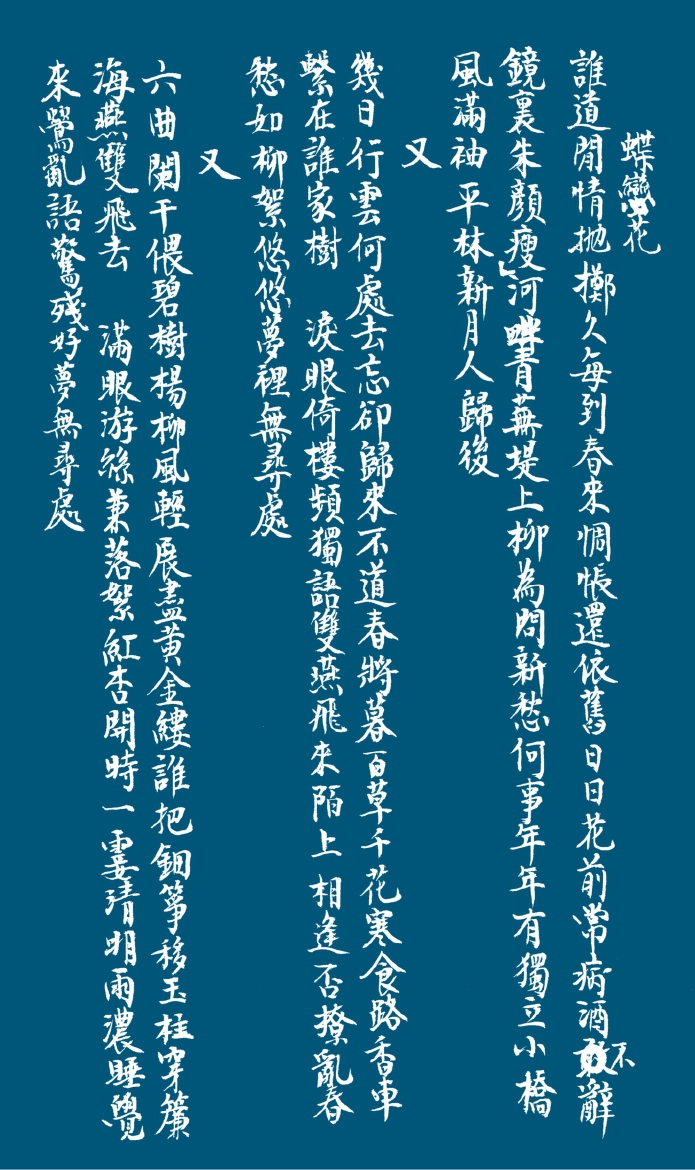 蝶戀花
誰道閒情拋擲久每到春來惆悵還依舊日日花前常病酒不辭
鏡裏朱顏瘦河畔青蕪堤上柳為問新愁何事年年有獨立小橋
風滿袖平林新月人歸後
又
幾日行雲何處去忘卻歸來不道春將暮百草千花寒食路香車
繫在誰家樹 淚眼倚樓頻獨語雙燕飛來陌上相逢否撩亂春
愁如柳絮悠悠夢裡無尋處
又
六曲闌干偎碧樹楊柳風輕展盡黃金縷誰把鈿箏移玉柱穿簾
海燕雙飛去 滿眼游絲兼落絮紅杏開時一霎清明雨濃睡覺
來鶯亂語驚殘好夢無尋處